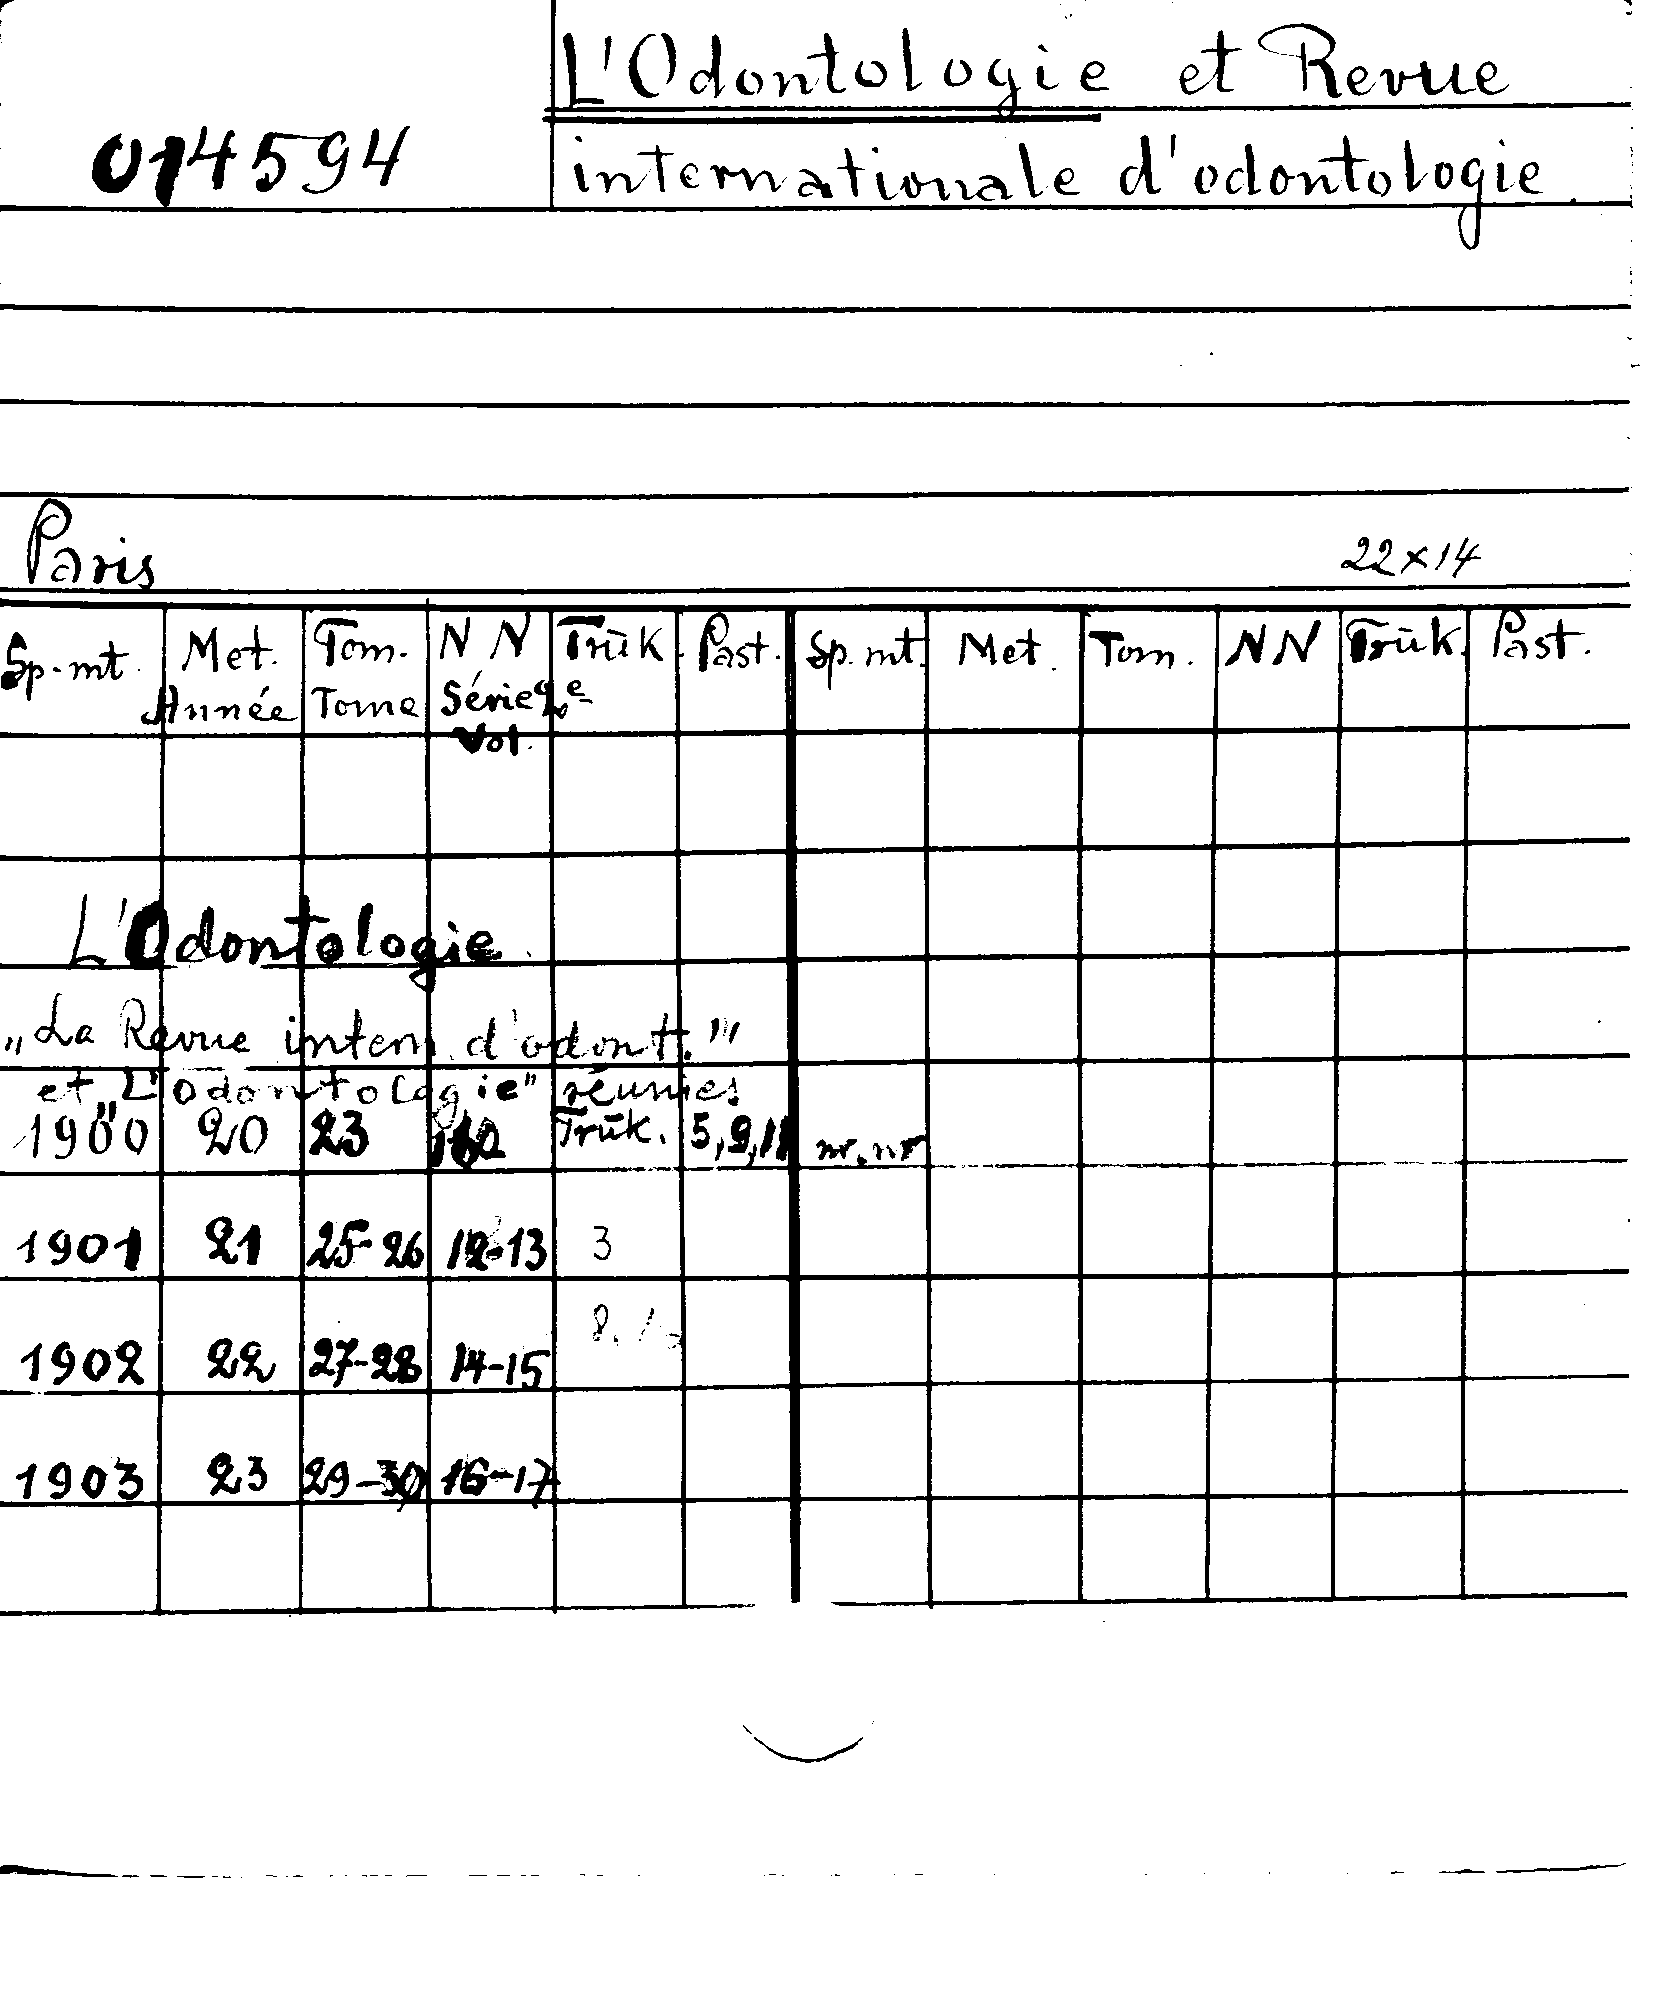 L'Odontologie et Revue
014594
internationale d'odontologie.
Paris 22×14
Sp. mt. Met. Tom. NN Trūk. Past. Sp. mt. Met. Tom. NN Trūk. Past.
Année Tome Série 2e
Vol.
L'Odontologie.
„La Revue intern. d'odont."
et „L'Odontologie" réunies
1900 20 23 Trūk. 5, 9, 11 nr. nr
1901 21 25-26 12-13 3
1902 22 27-28 14-15
1903 23 29-30 16-17